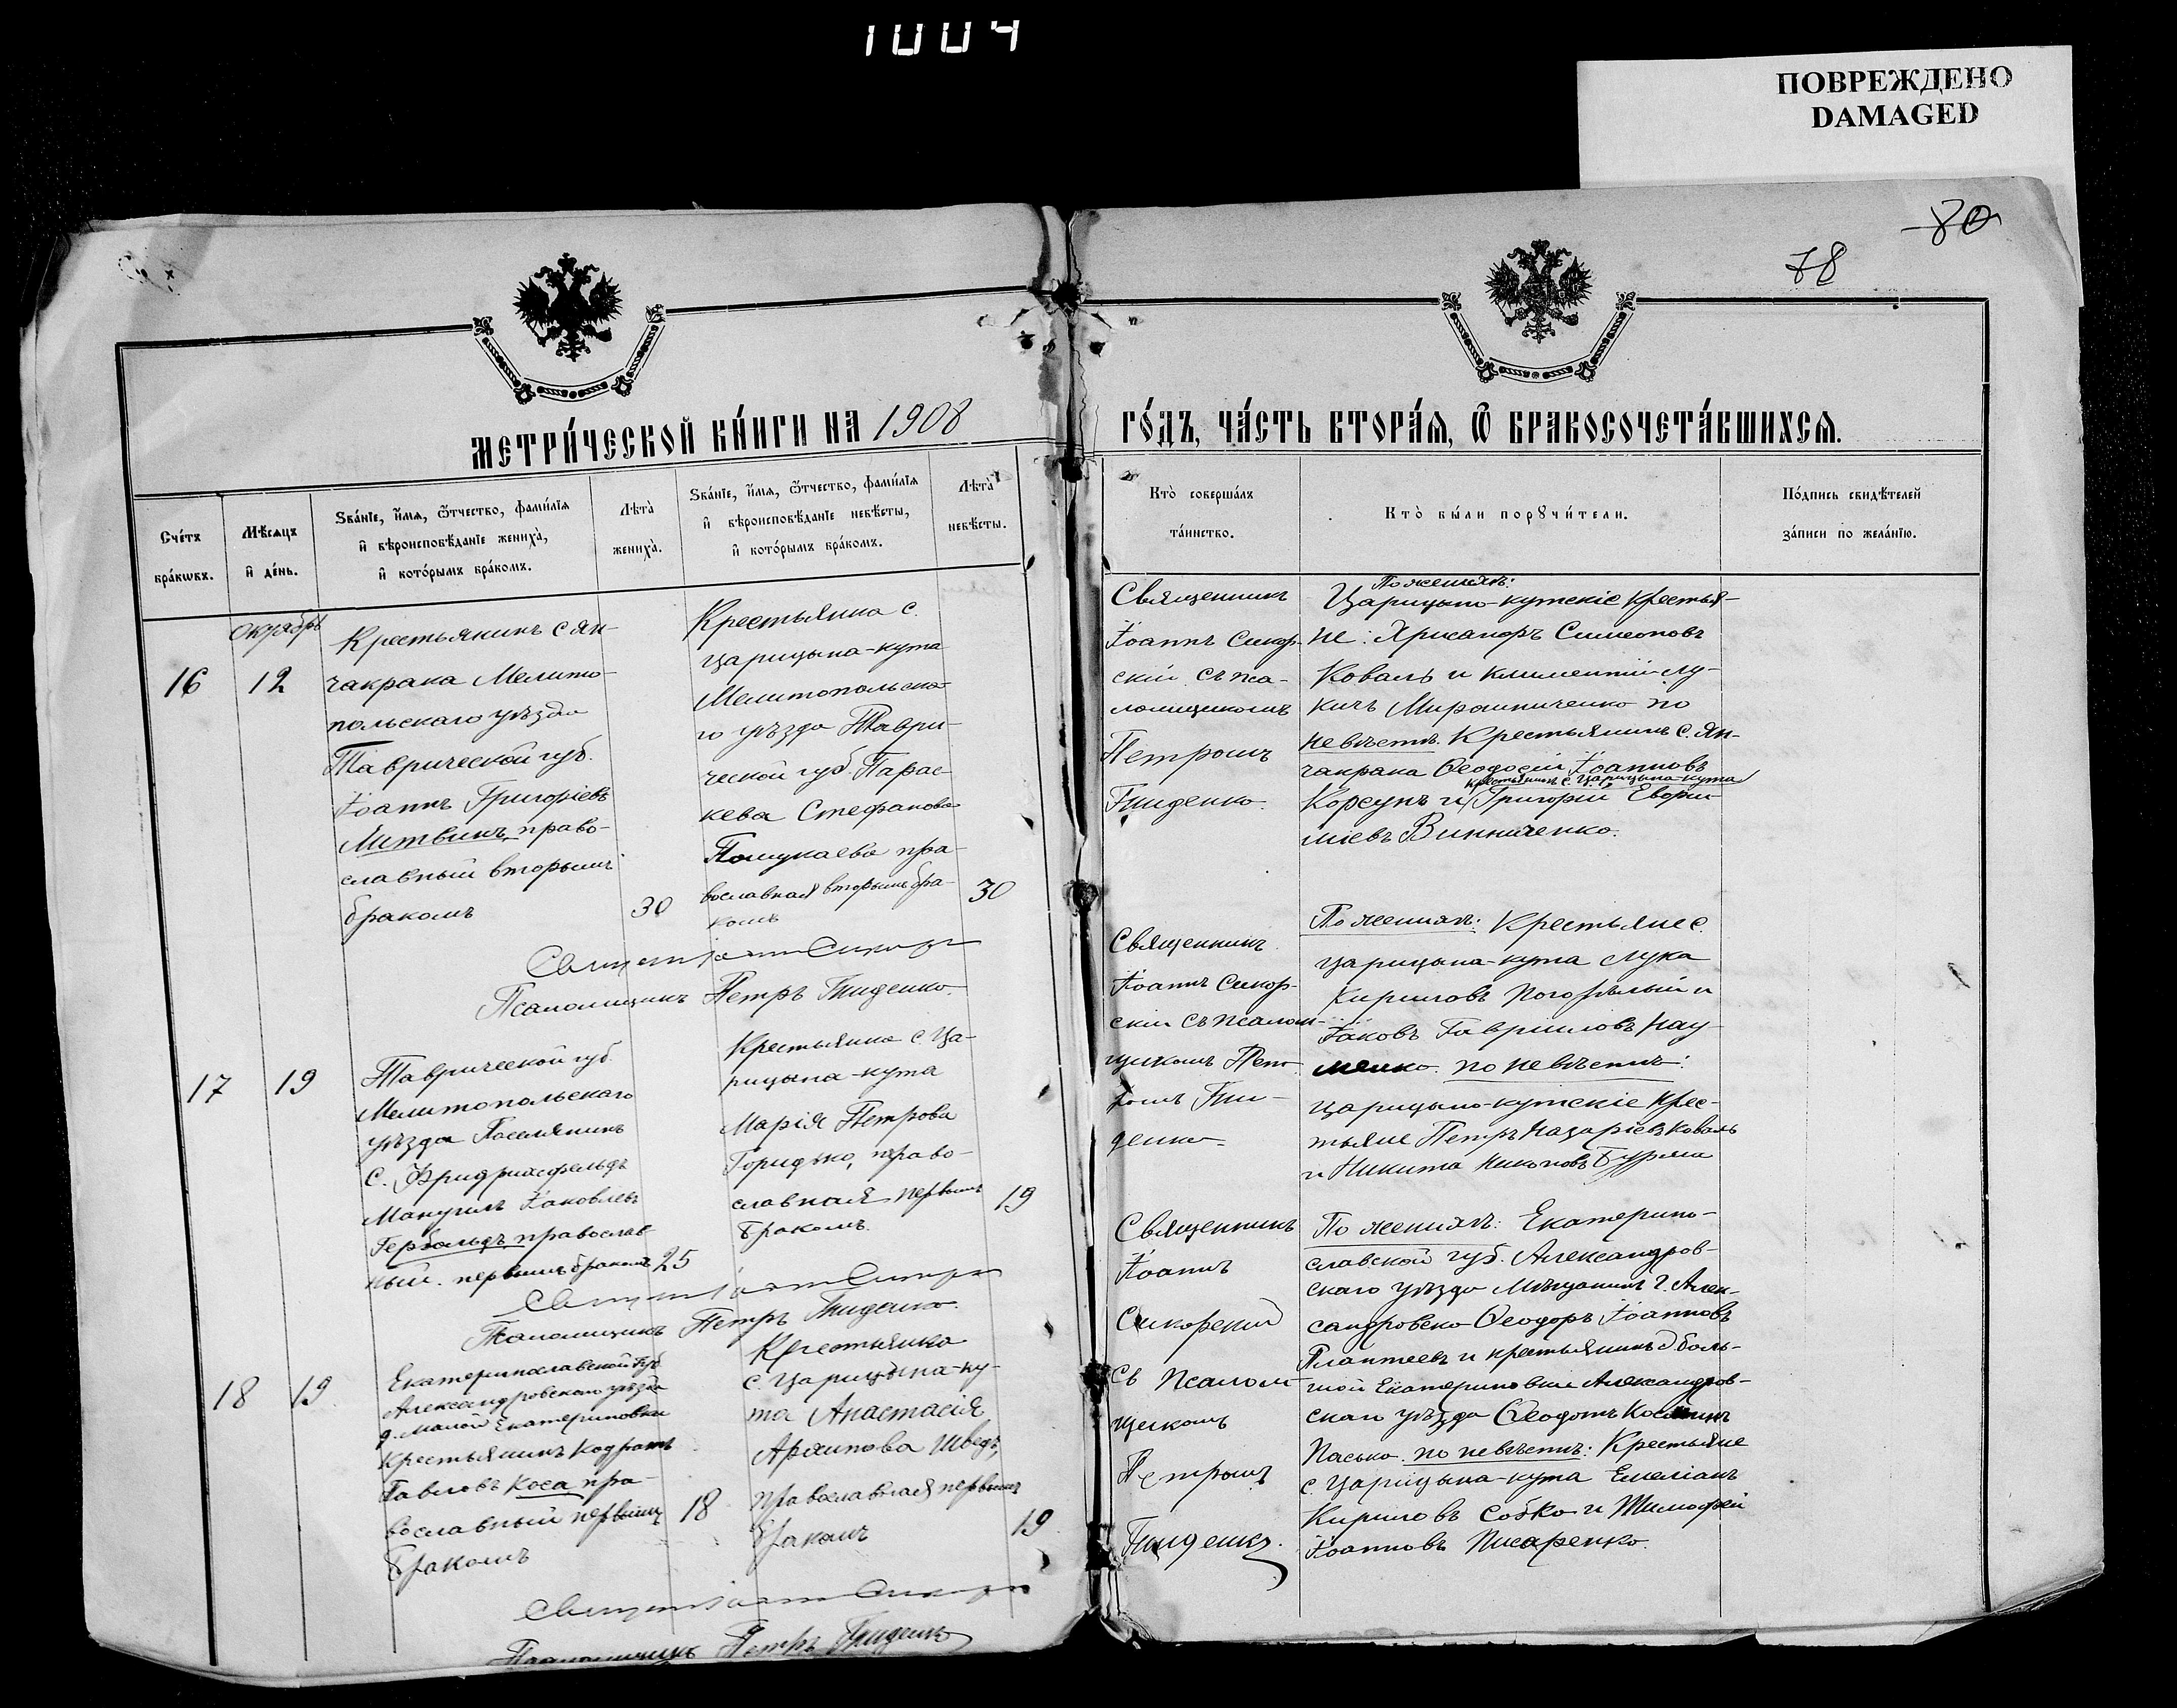 1004
ПОВРЕЖДЕНО
DAMAGED
80
78
МЕТРИ́ЧЕСКОЙ КНИ́ГИ НА 1908
ГО́ДЪ, ЧА́СТЬ ВТОРА́Я, Ѿ БРАКОСОЧЕТА́ВШИХСЯ.
Сче́тъ
бра́кѡвъ.
Мѣ́сяцъ
и҆ де́нь.
Ѕва́нїе, и҆́мя, ѻ҆́тчество, фами́лїя
и҆ вѣроисповѣ́данїе жениха̀,
и҆ кото́рымъ бра́комъ.
Лѣта̀
жениха̀.
Ѕва́нїе, и҆́мя, ѻ҆́тчество, фами́лїя
и҆ вѣроисповѣ́данїе невѣ́сты,
и҆ кото́рымъ бра́комъ.
Лѣта̀
невѣ́сты.
Кто̀ соверша́лъ
та́инство.
Кто̀ бы́ли порꙋчи́тели.
По́дпись свидѣ́телей
за́писи по жела́нїю.
Октябрь
16
12
Крестьянинъ с Ян-
чакрака Мелито-
польскаго уѣзда
Таврической губ.
Іоаннъ Григоріевъ
Литвинъ, право-
славный вторымъ
бракомъ
30
Крестьянка с.
Царицына-кута
Мелитопольска-
го уѣзда Таври-
ческой губ. Парас-
кева Стефанова
пра-
вославная вторымъ бра-
комъ
30
Священникъ
Іоаннъ Сикор-
скій съ пса-
ломщикомъ
Петромъ
Гниденко.
По женихѣ:
Царицыно-кутскіе крестья-
не: Хрисанфъ Симеоновъ
Коваль и Климентій Лу-
кичъ Мирошниченко по
невѣстѣ. Крестьянинъ с. Ян-
чакрака Ѳеодосій Іоанновъ
крестьянинъ с. Царицына-кута
Корсунъ и Григорій Евфи-
міевъ Винниченко.
Псаломщикъ Петръ Гниденко.
17
19
Таврической губ.
Мелитопольскаго
уѣзда Поселянинъ
с. Фридрихсфельдъ
Мануилъ Іаковлевъ
православ-
ный. первымъ бракомъ
25
Крестьянка с. Ца-
рицына-кута
Марія Петрова
Горидько, право-
славная первымъ
бракомъ.
19
Священникъ
Іоаннъ Сикор-
скій съ псалом-
щикомъ Пет-
ромъ Гни-
денко
По женихѣ: Крестьяне с.
Царицына-кута Лука
Кириловъ Погорѣлый и
Іаковъ Гавріиловъ Нау-
менко. по невѣстѣ:
Царицыно-кутскіе крес-
тьяне Петръ Назаріевъ Коваль
и Никита Никоновъ Бурма
Псаломщикъ Петръ Гниденко.
18
19
Екатеринославской губ.
Александровскаго уѣзда
д. Малой Екатериновки
крестьянинъ Кодратъ
Павловъ Коса пра-
вославный первымъ
бракомъ
18
Крестьянка
с. Царицына-ку-
та Анастасія
Архипова Шведъ,
православная первымъ
бракомъ
19
Священникъ
Іоаннъ
Сикорскій
съ псалом-
щикомъ
Петромъ
Гниденко.
По женихѣ: Екатерино-
славской губ. Александров-
скаго уѣзда Мѣщанинъ г. Алек-
сандровска Ѳеодоръ Іоанновъ
Плантеевъ и крестьянинъ д боль-
шой Екатериновки Александров-
скаго уѣзда Ѳеодотъ
Пасько. по невѣстѣ: Крестьяне
с. Царицына-кута Емеліанъ
Кириловъ Собко и Тимофей
Іоанновъ Писаренко.
Псаломщикъ Петръ Гниденко